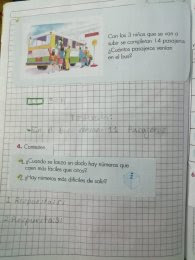 Con los 3 niños que se van a
subir se completan 14 pasajeros.
¿Cuántos pasajeros venían
en el bus?
En el bus
6. Comenten.
¿Cuando se lanza un dado hay números que
caen más fáciles que otros?
¿Hay números más difíciles de salir?
1 Respuesta:
2 Respuesta: